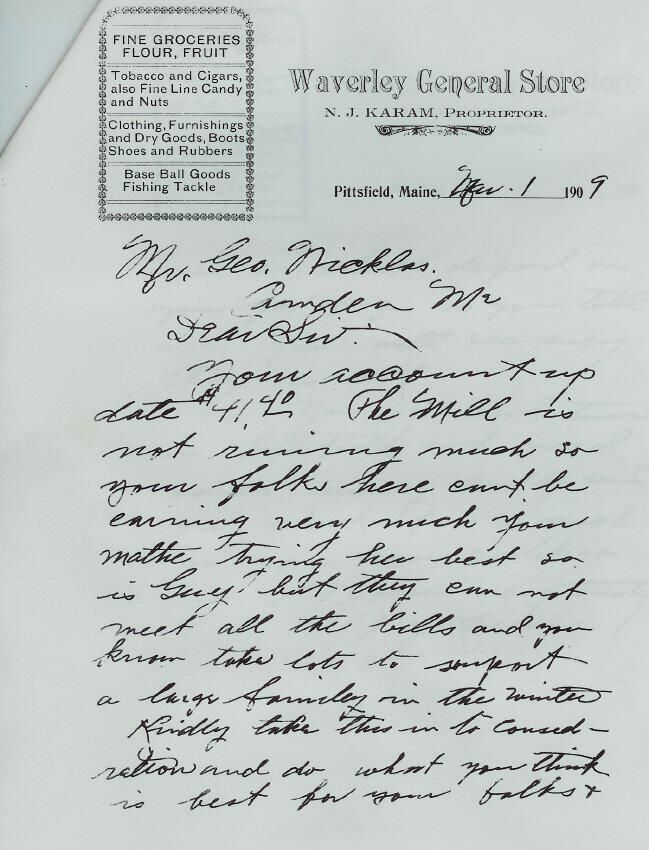 FINE GROCERIES
FLOUR, FRUIT
Tobacco and Cigars,
also Fine Line Candy
and Nuts
Clothing, Furnishings
and Dry Goods, Boots
Shoes and Rubbers
Base Ball Goods
Fishing Tackle
Waverley General Store
N. J. KARAM, PROPRIETOR.
Pittsfield, Maine, Mar. 1 1909
Mr. Geo. Nicklas.
Camden Me
Dear Sir:
Your account up
date $41.40 The Mill is
not runing much so
your folks here cant be
earning very much Your
mathe trying her best so
is Guy but they can not
meet all the bills and you
know take lots to support
a large familey in the winter
Kindly take this in to consed-
ration and do what you think
is best for your folks &